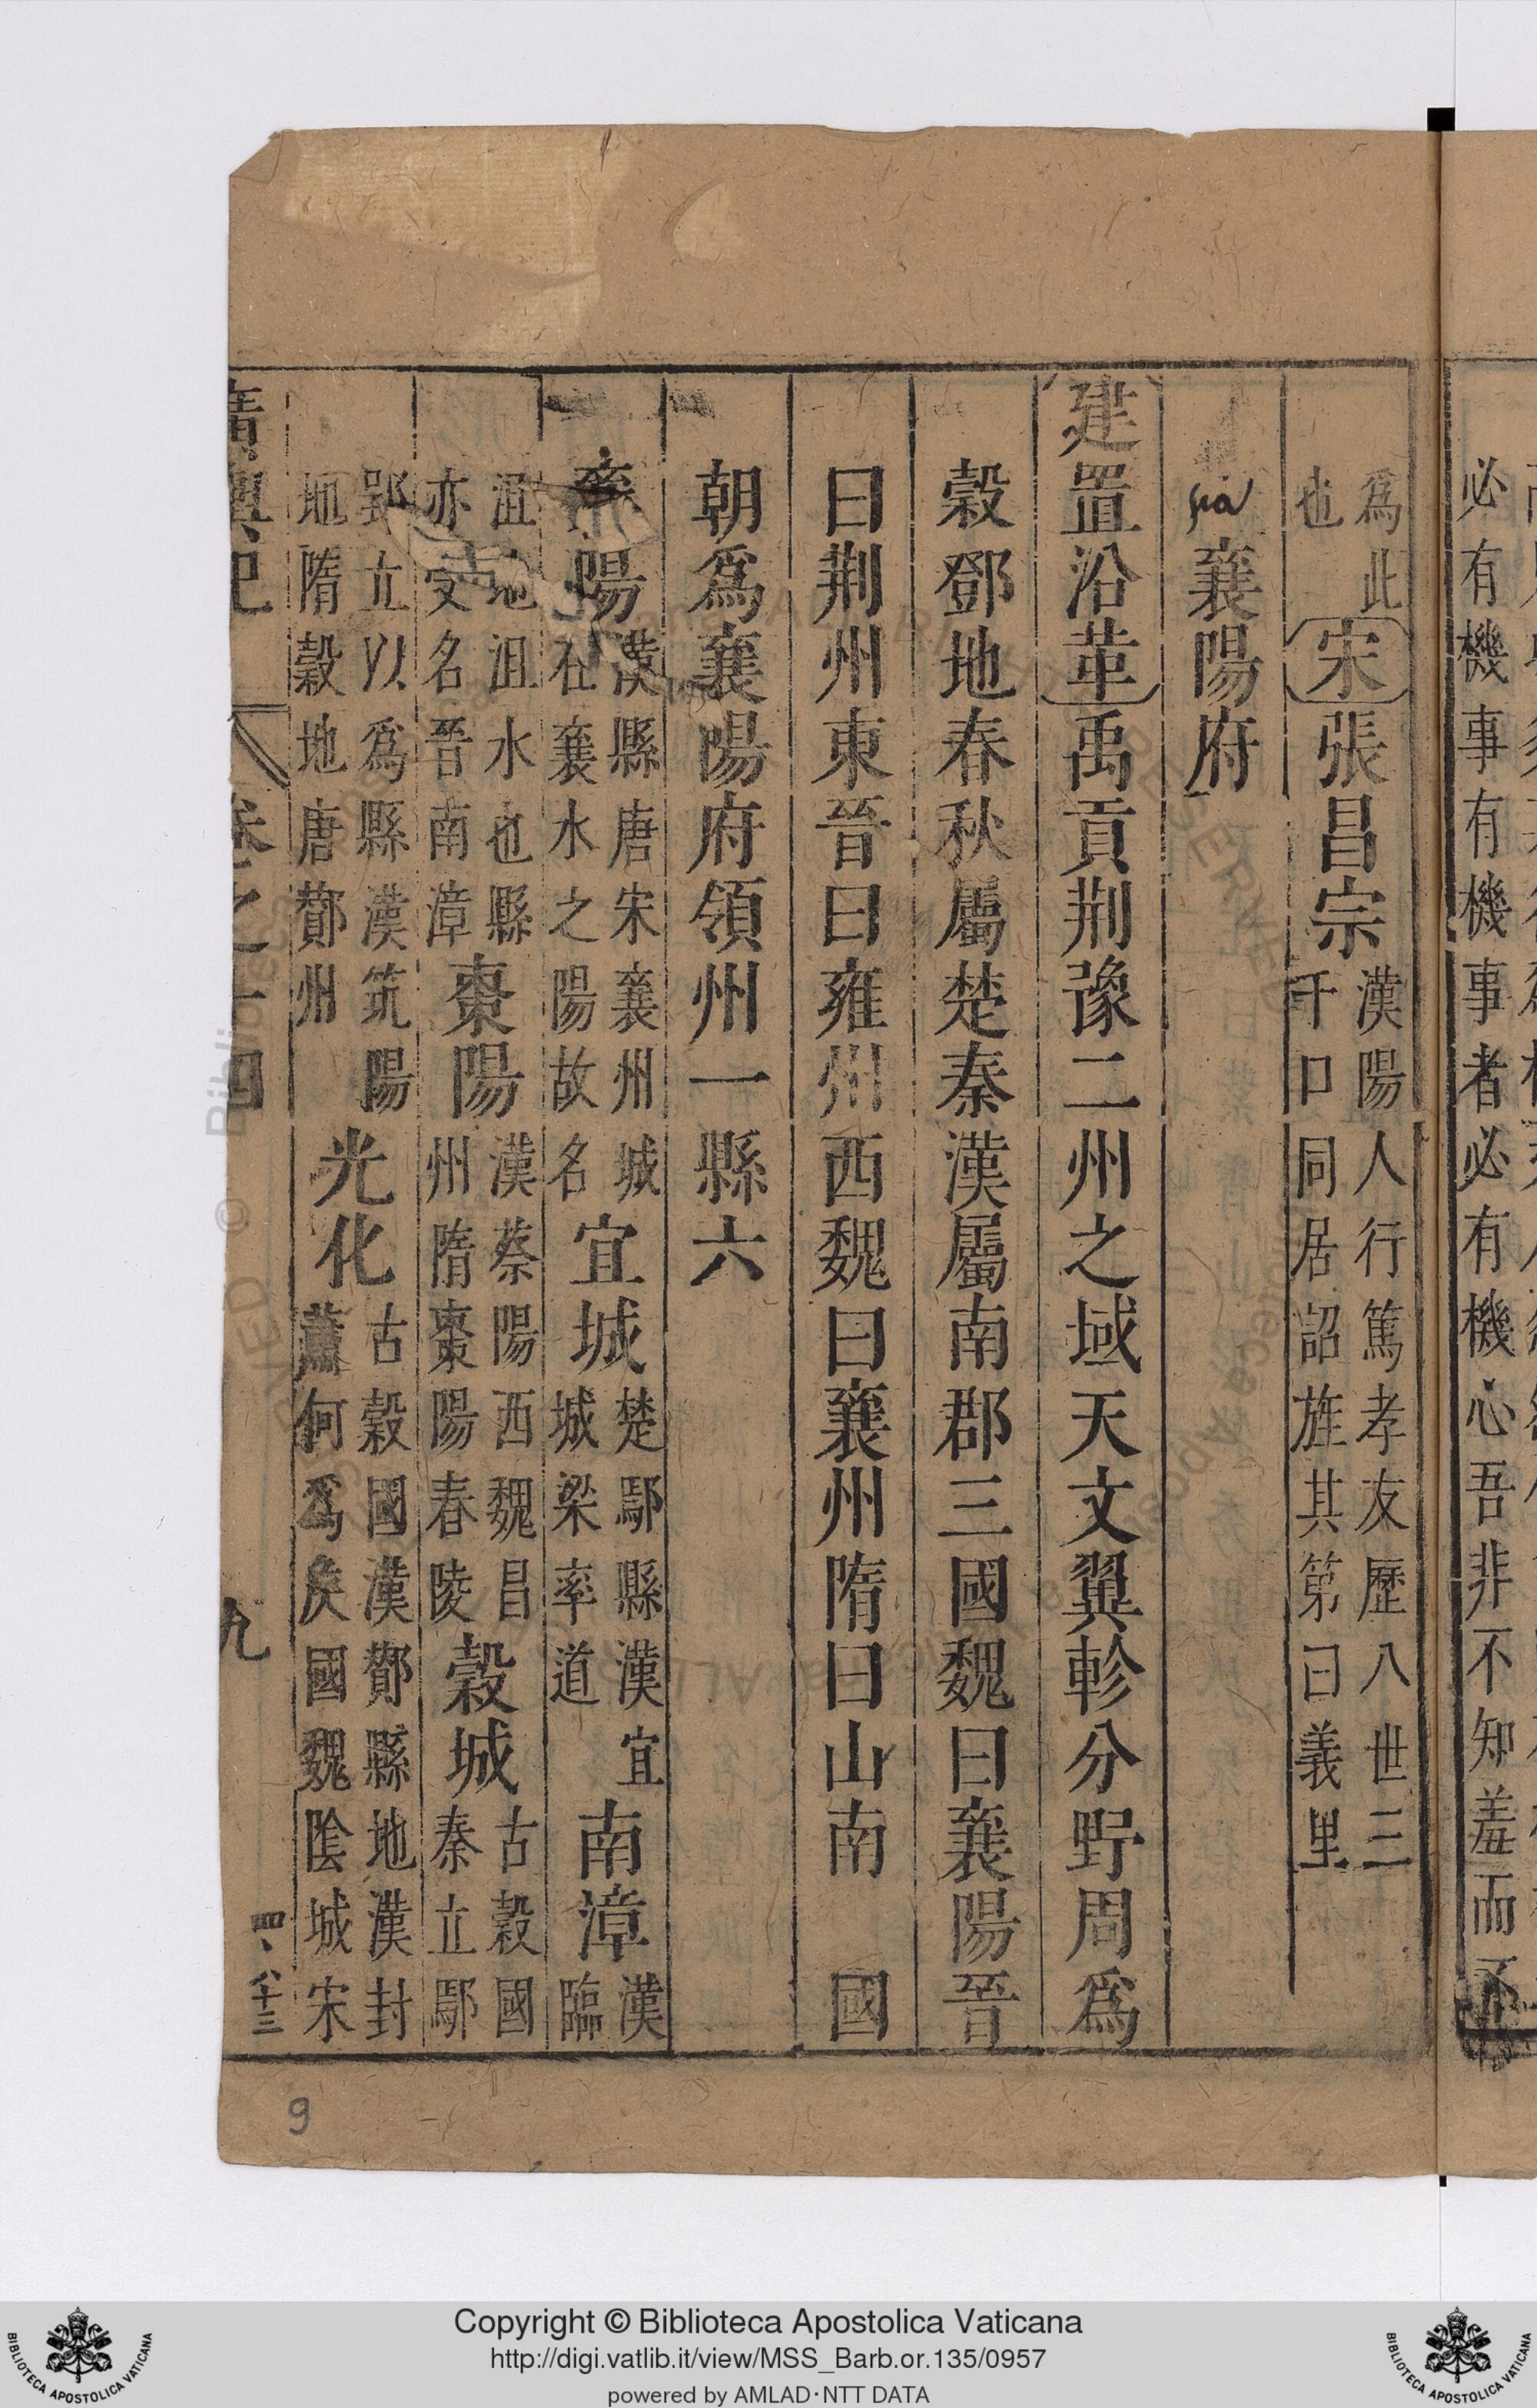 必有機事有機事者必有機心吾非不知羞而不
爲此
也
宋張昌宗
漢陽人行篤孝友歷八世三
千口同居詔旌其第曰義里
襄陽府
建置沿革禹貢荆豫二州之域天文翼軫分野周爲
榖鄧地春秋屬楚秦漢屬南郡三國魏曰襄陽晉
曰荆州東晉曰雍州西魏曰襄州隋曰山南國
朝爲襄陽府領州一縣六
襄陽
漢縣唐宋襄州城
在襄水之陽故名
宜城
楚鄢縣漢宜
城梁率道
南漳
漢
臨
沮地沮水也縣
亦以名晉南漳
棗陽
漢蔡陽西魏昌
州隋棗陽春陵
榖城
古榖國
秦立鄢
郢立以爲縣漢筑陽
地隋榖地唐酇州
光化
古榖國漢酇縣地漢封
蕭何爲侯國魏陰城宋
廣輿記 卷之十四 九
四、八十三
9
Copyright © Biblioteca Apostolica Vaticana
http://digi.vatlib.it/view/MSS_Barb.or.135/0957
powered by AMLAD·NTT DATA
BIBLIOTECA APOSTOLICA VATICANA
BIBLIOTECA APOSTOLICA VATICANA